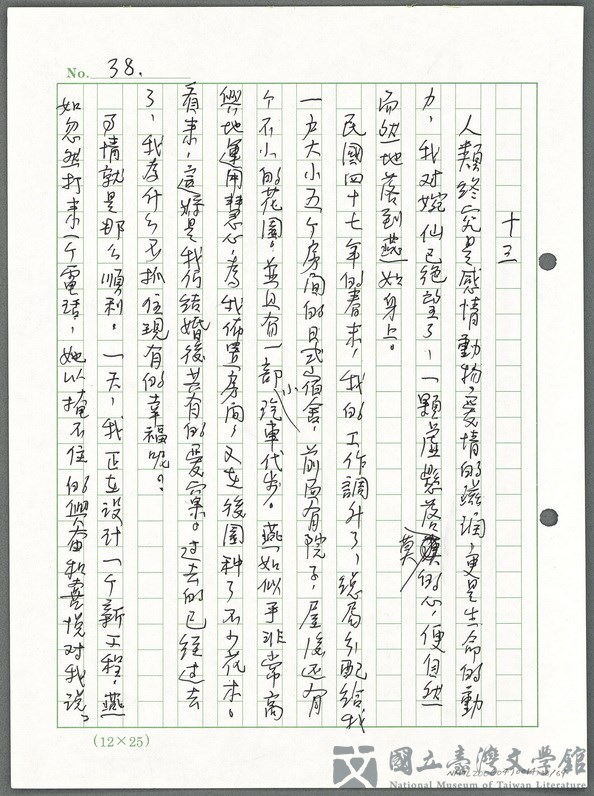 No. 38.
十三
人類終究是感情動物,愛情的滋潤,更是生命的動
力,我對婉仙已絕望了,一顆虛懸落莫的心,便自然
而然地落到燕如身上。
民國四十七年的春末,我的工作調升了,總局分配給我
一戶大小五个房间的日式宿舍,前面有院子,屋後还有
个不小的花園。並且有一部小汽車代步。燕如似乎非常高
興地運用慧心,為我佈置房间,又在後園种了不少花木。
看来,這好像是我们結婚後共有的愛窠。过去的已经过去
了,我為什么不抓住現有的幸福呢。
事情就是那么順利。一天,我正在設计一个新工程,燕
如忽然打来一个電话,她以掩不住的興奋和喜悦对我说。
(12×25)
國立臺灣文學館
National Museum of Taiwan Literature